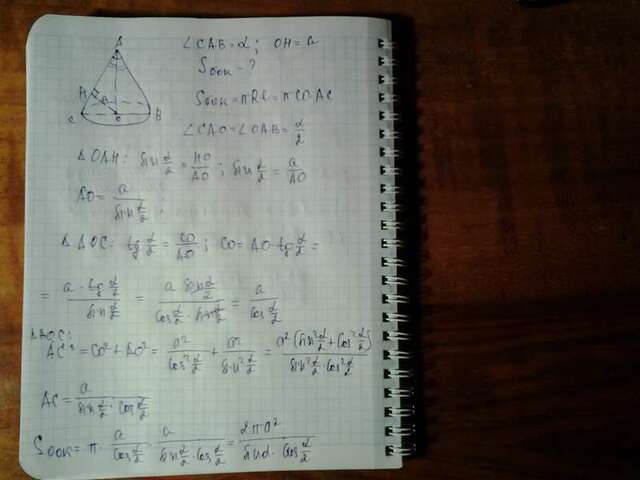 A
H
a
C
O
B
∠CAB = α; OH = a
Sбок - ?
Sбок = πRl = π CO·AC
∠CAO = ∠OAB = α/2
ΔOAH: sin α/2 = HO/AO; sin α/2 = a/AO
AO = a/sin α/2;
ΔAOC: tg α/2 = CO/AO; CO = AO·tg α/2 =
= a·tg α/2 / sin α/2 = a sin α/2 / cos α/2 · sin α/2 = a / cos α/2
ΔAOC:
AC² = CO² + AO² = a²/cos² α/2 + a²/sin² α/2 = a²(sin² α/2 + cos² α/2) / sin² α/2 · cos² α/2
AC = a / sin α/2 · cos α/2
Sбок = π · a/cos α/2 · a / sin α/2 · cos α/2 = 2πa² / sin α · cos α/2